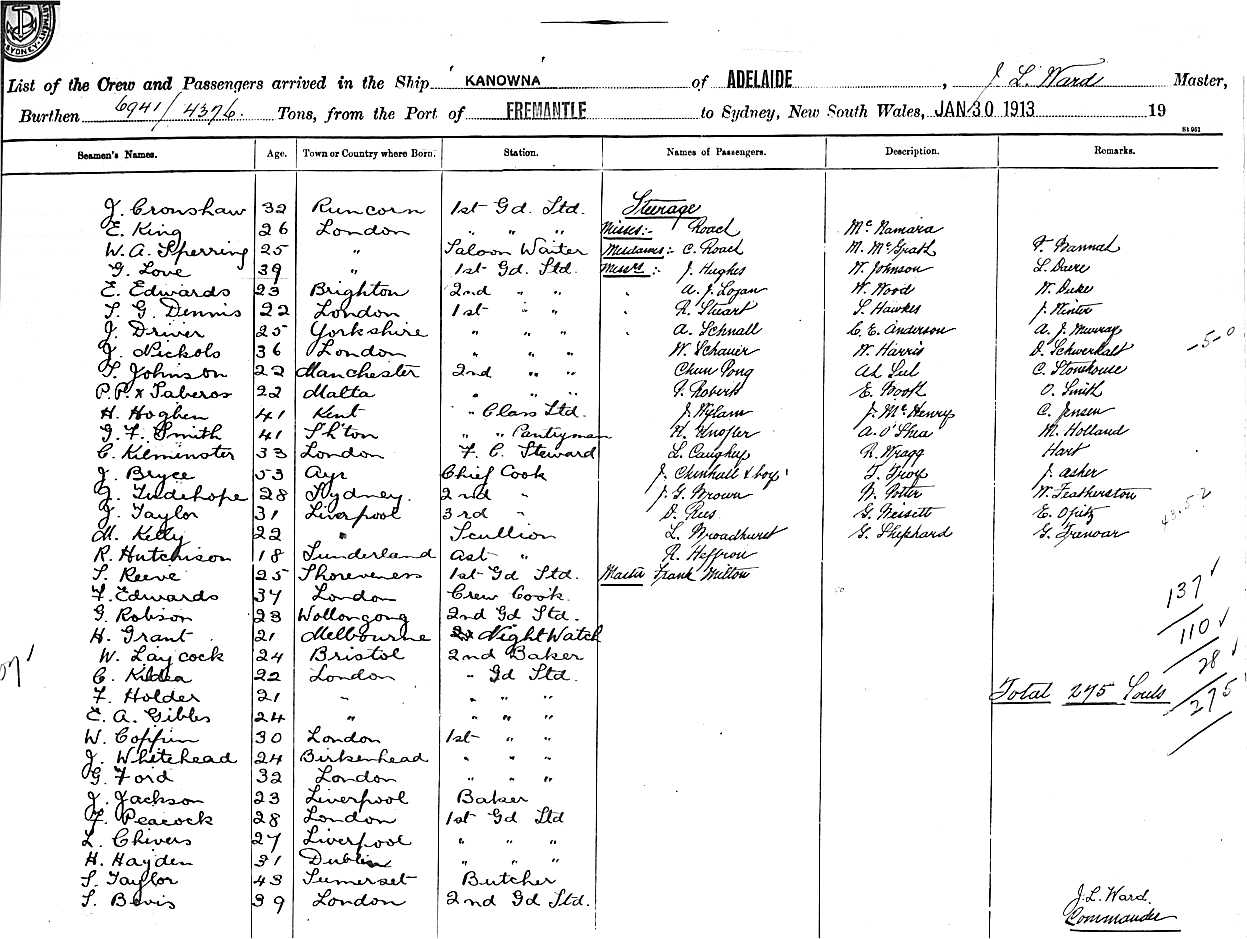 SYDNEY
List of the Crew and Passengers arrived in the Ship KANOWNA of ADELAIDE, J. L. Ward Master,
Burthen 6941/4376. Tons, from the Port of FREMANTLE to Sydney, New South Wales, JAN 30 1913 19
Seamen's Names. Age. Town or Country where Born. Station. Names of Passengers. Description. Remarks.
J. Cronshaw 32 Runcorn 1st Gd. Std. Steerage
E. King 26 London " " " Misses:- Roach McNamara
W. A. Sperring 25 " Saloon Waiter Mesdames:- C. Roach M. McGrath F. Hannah
G. Love 39 " 1st Gd. Std. Messrs:- J. Hughes W. Johnson
E. Edwards 23 Brighton 2nd " " A. J. Logan W. Wood W. Duke
S. G. Dennis 22 London 1st " " R. Stuart S. Hawkes J. Winter
J. Driver 25 Yorkshire " " " A. Schnall C. E. Anderson A. J. Murray
J. Nickols 36 London " " " W. Schauer W. Harris D. Schwerkalt -5-0
S. Johnson 22 Manchester 2nd " " Chun Pong Ah C. Stonehouse
P. P. x Saberos 22 Malta " " " Roberts E. Booth O. Smith
H. Hoghen 41 Kent " Class Std. J. Wylam J. McHenry C. Jensen
G. F. Smith 41 Sh'ton " " Pantryman Knofler A. O'Shea M. Holland
C. Kilminster 33 London F. C. Steward L. Caughey R. Wragg Hart
J. Bryce 53 Ayr Chief Cook J. Chinhall & boy T. Troy J. Asher
J. Tudehope 28 Sydney. 2nd " J. G. Brown Potter W. Featherston
J. Taylor 31 Liverpool 3rd " D. Rees G. Neisett E. Opitz
M. Kelly 22 " Scullion L. Broadhurst G. Shephard G. Trenoar
R. Hutchison 18 Sunderland Ast " R. Heffron
S. Reeve 25 Shoreyness 1st Gd Std. Master Frank Milton
F. Edwards 37 London Crew Cook.
G. Robson 23 Wollongong 2nd Gd Std. 137
H. Grant 21 Melbourne Night Watch 110
W. Laycock 24 Bristol 2nd Baker
C. Kildea 22 London " Gd Std. 28
F. Holder 21 " " " " Total 275 Souls 275
E. A. Gibbs 24 " " " "
W. Coppin 30 London 1st " "
J. Whitehead 24 Birkenhead " " "
G. Ford 32 London " " "
J. Jackson 23 Liverpool Baker
F. Peacock 28 London 1st Gd Std
L. Chivers 27 Liverpool " " "
H. Hayden 31 Dublin " " "
S. Taylor 43 Sumerset Butcher
S. Bevis 39 London 2nd Gd Std.
J. L. Ward.
Commander